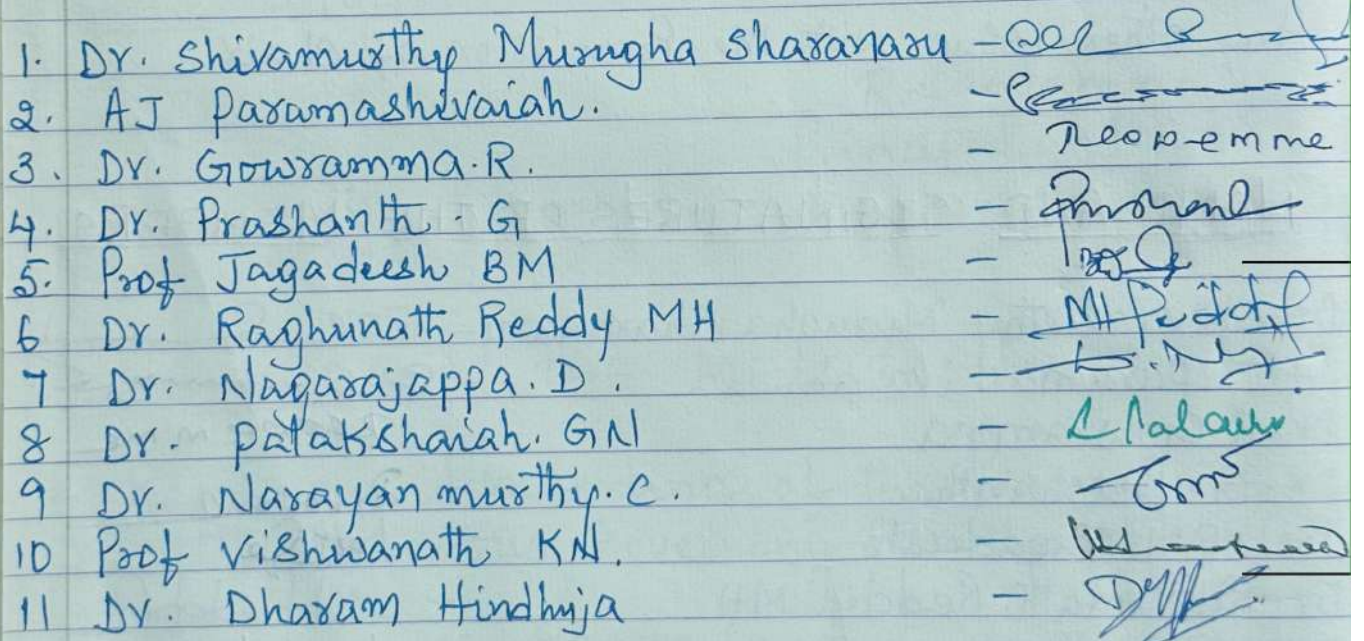 1. Dr. Shivamurthy Murugha Sharanaru -
2. AJ Paramashivaiah. -
3. Dr. Gowramma.R. -
4. Dr. Prashanth. G -
5. Prof Jagadeesh BM -
6 Dr. Raghunath Reddy MH -
7 Dr. Nagarajappa. D. -
8 Dr. Patakshaiah. GN -
9 Dr. Narayan murthy. C. -
10 Prof Vishwanath KN. -
11 Dr. Dharam Hindhuja -